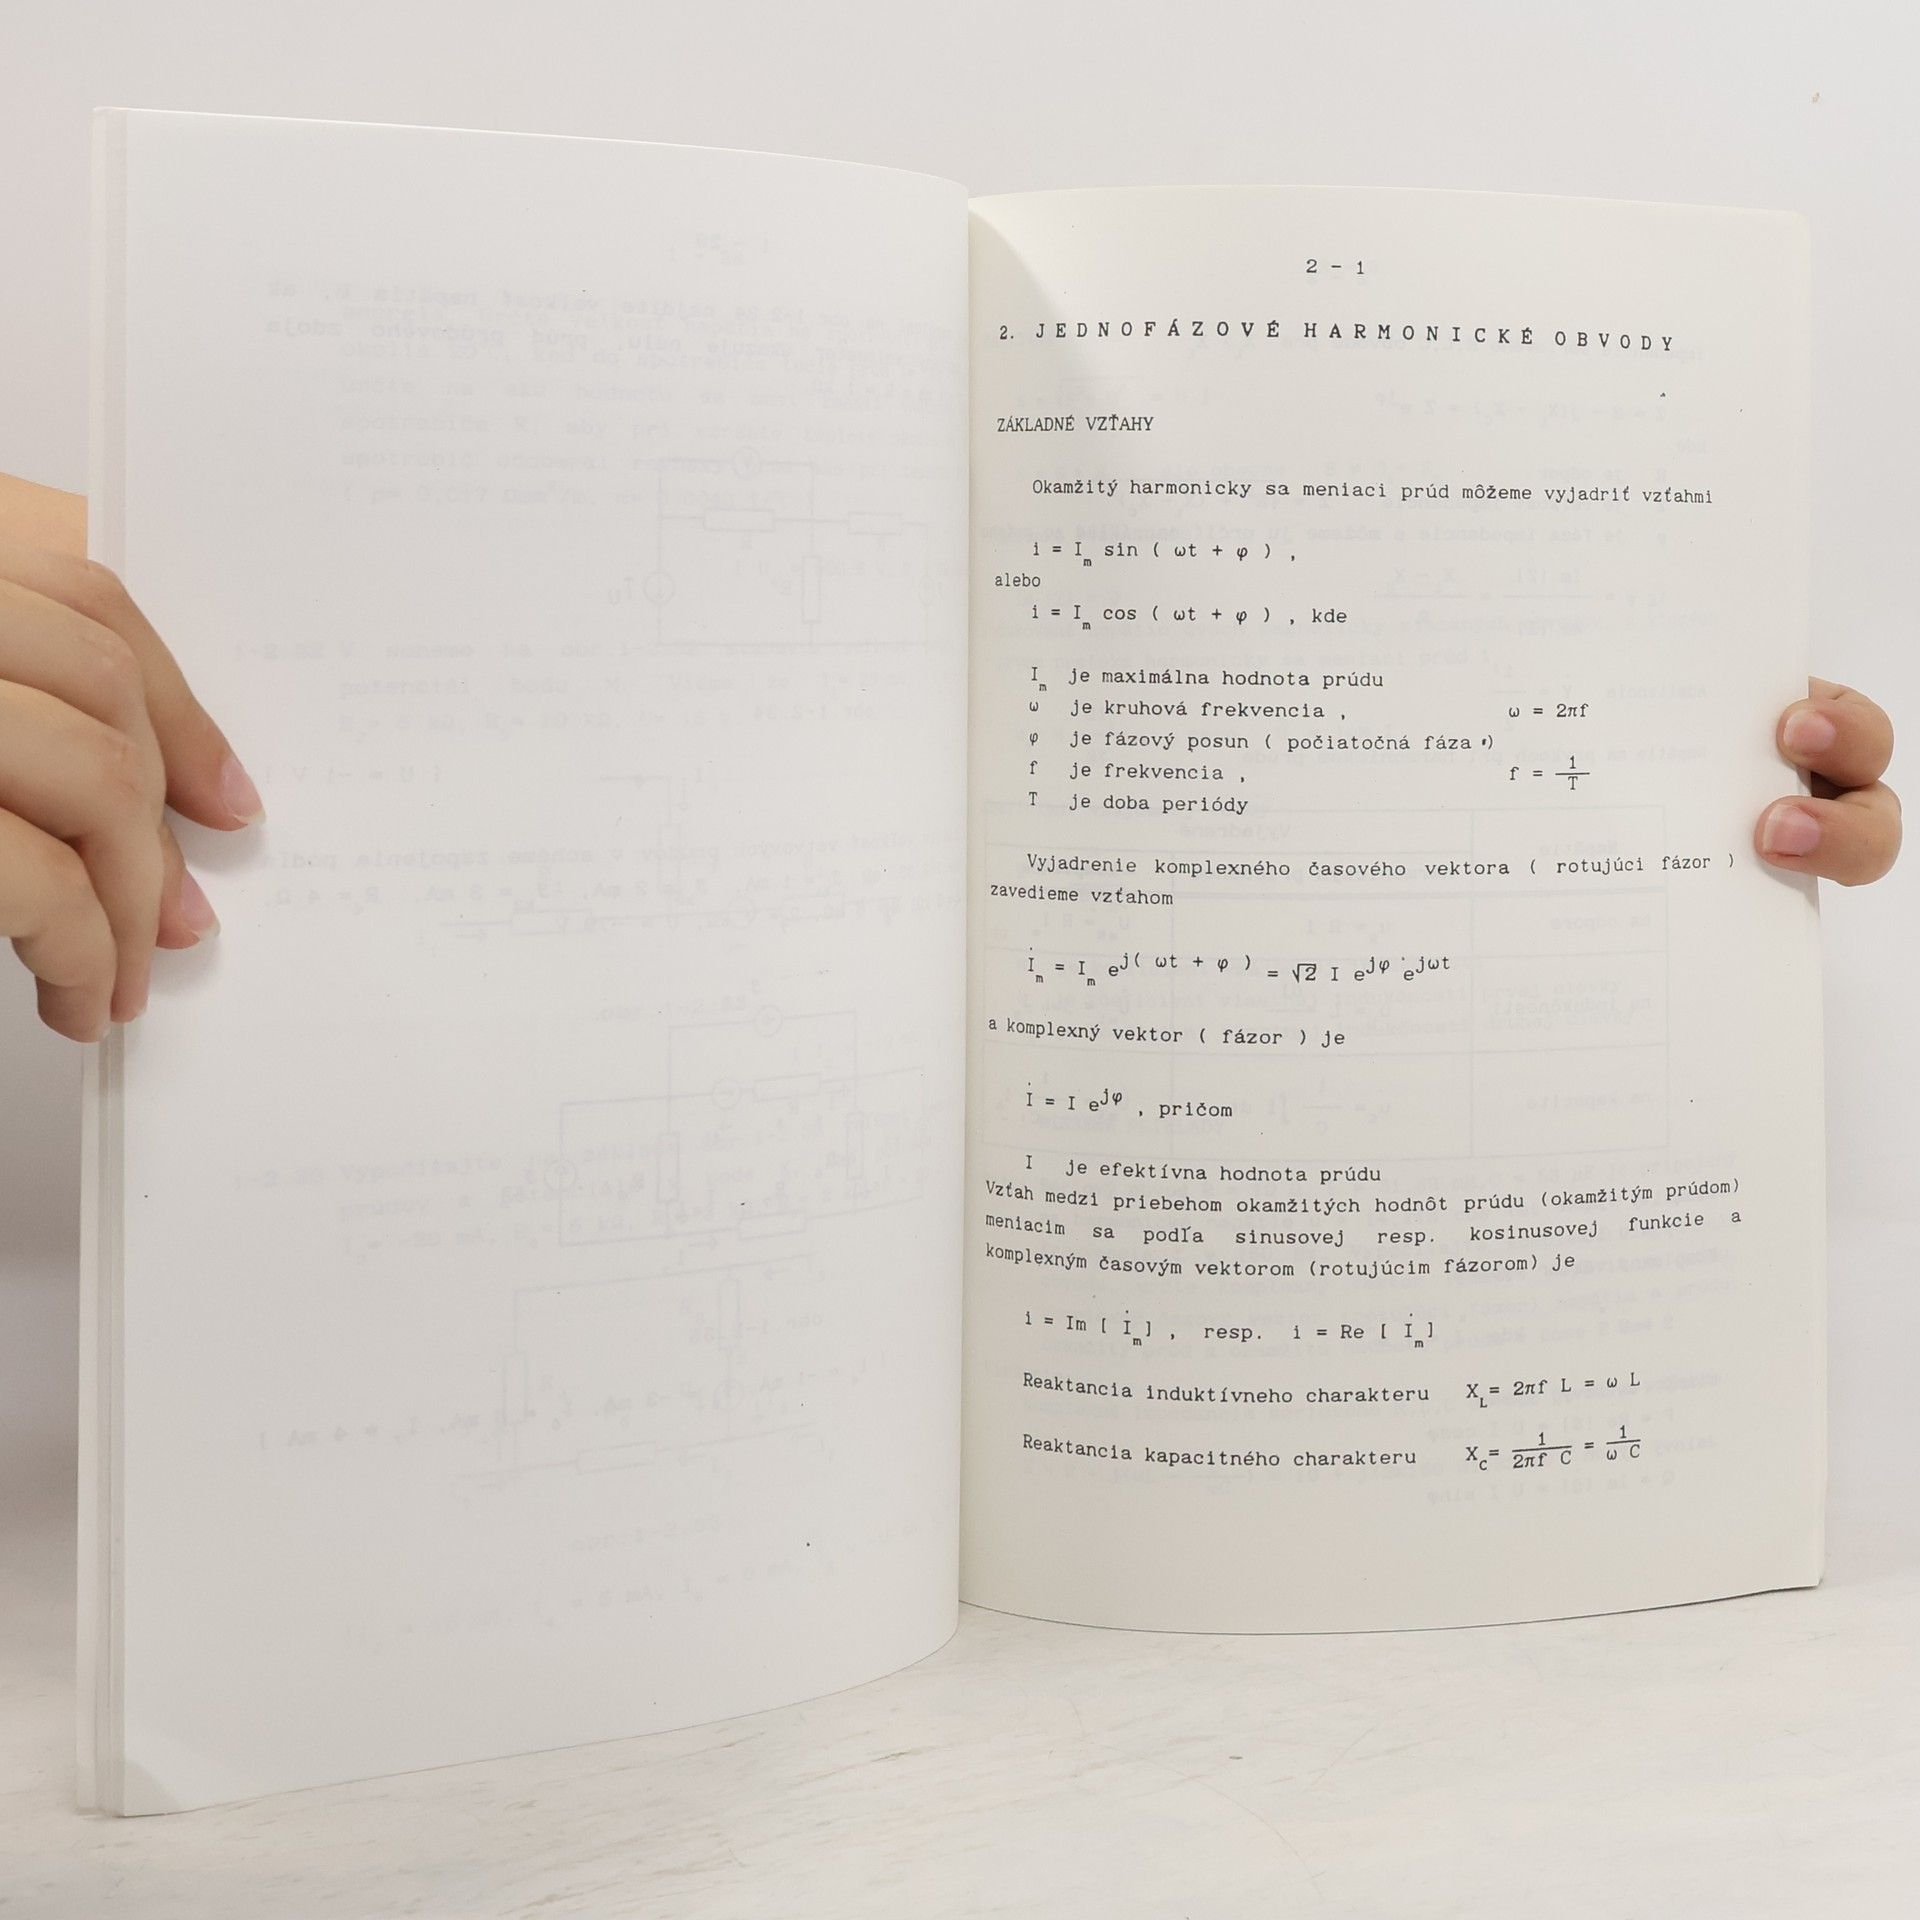 2 - 1
2. JEDNOFÁZOVÉ HARMONICKÉ OBVODY
ZÁKLADNÉ VZŤAHY
Okamžitý harmonicky sa meniaci prúd môžeme vyjadriť vzťahmi
i = I_m sin ( ωt + φ ) ,
alebo
i = I_m cos ( ωt + φ ) , kde
I_m je maximálna hodnota prúdu
ω je kruhová frekvencia , ω = 2πf
φ je fázový posun ( počiatočná fáza )
f je frekvencia , f = 1/T
T je doba periódy
Vyjadrenie komplexného časového vektora ( rotujúci fázor )
zavedieme vzťahom
İ_m = I_m e^j( ωt + φ ) = √2 I e^jφ e^jωt
a komplexný vektor ( fázor ) je
İ = I e^jφ , pričom
I je efektívna hodnota prúdu
Vzťah medzi priebehom okamžitých hodnôt prúdu (okamžitým prúdom)
meniacim sa podľa sinusovej resp. kosinusovej funkcie a
komplexným časovým vektorom (rotujúcim fázorom) je
i = Im [ İ_m] , resp. i = Re [ İ_m]
Reaktancia induktívneho charakteru X_L= 2πf L = ω L
Reaktancia kapacitného charakteru X_C= 1/2πf C = 1/ω C